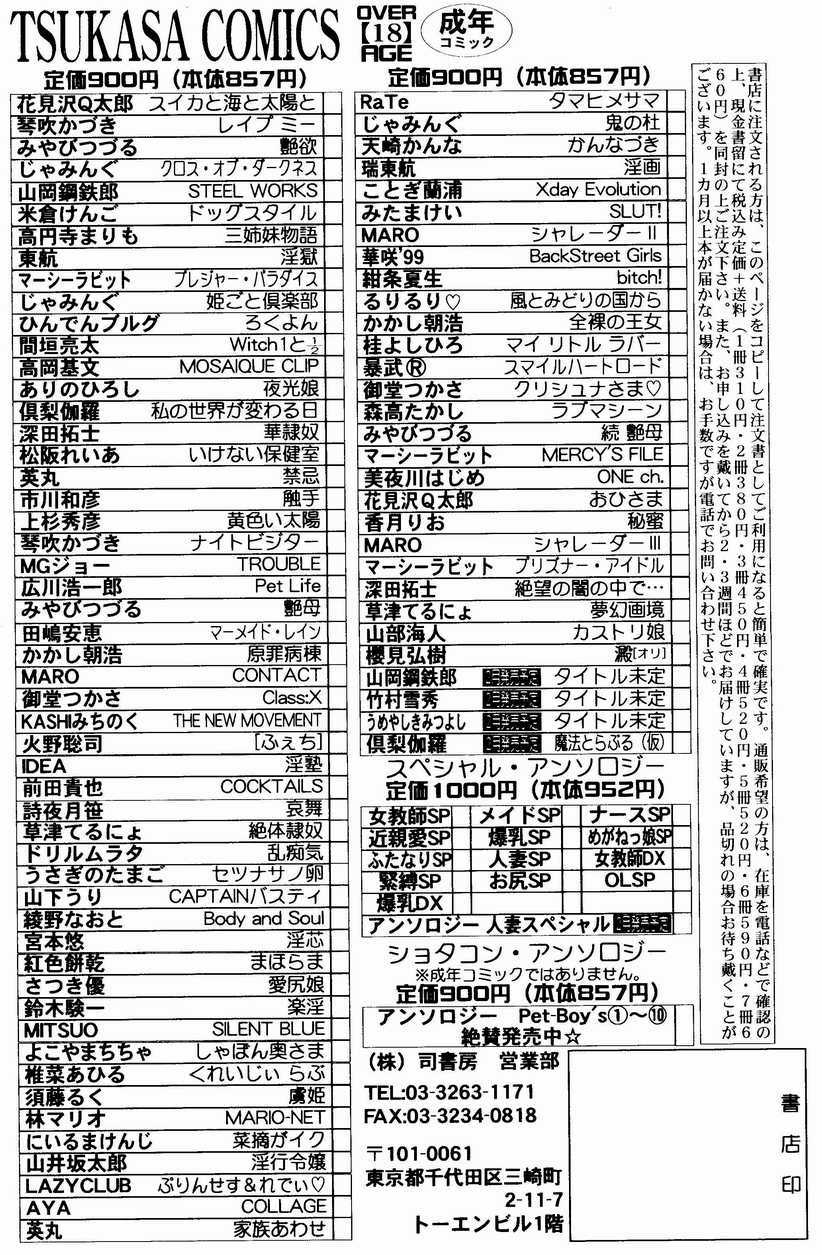 TSUKASA COMICS
OVER
【18】
AGE
成年
コミック
定価900円（本体857円）
花見沢Q太郎 スイカと海と太陽と
琴吹かづき レイプ ミー
みやびつづる 艶欲
じゃみんぐ クロス・オブ・ダークネス
山岡鋼鉄郎 STEEL WORKS
米倉けんご ドッグスタイル
高円寺まりも 三姉妹物語
東航 淫獄
マーシーラビット プレジャー・パラダイス
じゃみんぐ 姫ごと倶楽部
ひんでんブルグ ろくよん
間垣亮太 Witch1と½
高岡基文 MOSAIQUE CLIP
ありのひろし 夜光娘
倶梨伽羅 私の世界が変わる日
深田拓士 華隷奴
松阪れいあ いけない保健室
英丸 禁忌
市川和彦 触手
上杉秀彦 黄色い太陽
琴吹かづき ナイトビジター
MGジョー TROUBLE
広川浩一郎 Pet Life
みやびつづる 艶母
田嶋安恵 マーメイド・レイン
かかし朝浩 原罪病棟
MARO CONTACT
御堂つかさ Class:X
KASHIみちのく THE NEW MOVEMENT
火野聡司 [ふぇち]
IDEA 淫塾
前田貴也 COCKTAILS
詩夜月笹 哀舞
草津てるにょ 絶体隷奴
ドリルムラタ 乱痴気
うさぎのたまご セツナサノ卵
山下うり CAPTAINバスティ
綾野なおと Body and Soul
宮本悠 淫芯
紅色餅乾 まほらま
さつき優 愛尻娘
鈴木験一 楽淫
MITSUO SILENT BLUE
よこやまちちゃ しゃぼん奥さま
椎菜あひる くれいじぃ らぶ
須藤るく 虜姫
林マリオ MARIO-NET
にいるまけんじ 菜摘がイク
山井坂太郎 淫行令嬢
LAZYCLUB ぷりんせす&れでぃ♡
AYA COLLAGE
英丸 家族あわせ
定価900円（本体857円）
RaTe タマヒメサマ
じゃみんぐ 鬼の杜
天崎かんな かんなづき
瑞東航 淫画
ことぎ蘭浦 Xday Evolution
みたまけい SLUT!
MARO シャレーダーⅡ
華咲'99 BackStreet Girls
紺条夏生 bitch!
るりるり♡ 風とみどりの国から
かかし朝浩 全裸の王女
桂よしひろ マイ リトル ラバー
暴武Ⓡ スマイルハートロード
御堂つかさ クリシュナさま♡
森高たかし ラブマシーン
みやびつづる 続 艶母
マーシーラビット MERCY'S FILE
美夜川はじめ ONE ch.
花見沢Q太郎 おひさま
香月りお 秘蜜
MARO シャレーダーⅢ
マーシーラビット プリズナー・アイドル
深田拓士 絶望の闇の中で…
草津てるにょ 夢幻画境
山部海人 カストリ娘
櫻見弘樹 澱[オリ]
山岡鋼鉄郎 タイトル未定
竹村雪秀 タイトル未定
うめやしきみつよし タイトル未定
倶梨伽羅 魔法とらぶる（仮）
スペシャル・アンソロジー
定価1000円（本体952円）
女教師SP メイドSP ナースSP
近親愛SP 爆乳SP めがねっ娘SP
ふたなりSP 人妻SP 女教師DX
緊縛SP お尻SP OLSP
爆乳DX
アンソロジー 人妻スペシャル
ショタコン・アンソロジー
※成年コミックではありません。
定価900円（本体857円）
アンソロジー Pet-Boy's①～⑩
絶賛発売中☆
（株）司書房 営業部
TEL:03-3263-1171
FAX:03-3234-0818
〒101-0061
東京都千代田区三崎町
2-11-7
トーエンビル1階
書店印
書店に注文される方は、このページをコピーして注文書としてご利用になると簡単で確実です。通販希望の方は、在庫を電話などで確認の
上、現金書留にて税込み定価＋送料（1冊310円・2冊380円・3冊450円・4冊520円・5冊520円・6冊590円・7冊6
60円）を同封の上ご注文下さい。また、お申し込みを戴いてから2・3週間ほどでお届けしていますが、品切れの場合お待ち戴くことが
ございます。1カ月以上本が届かない場合は、お手数ですが電話でお問い合わせ下さい。